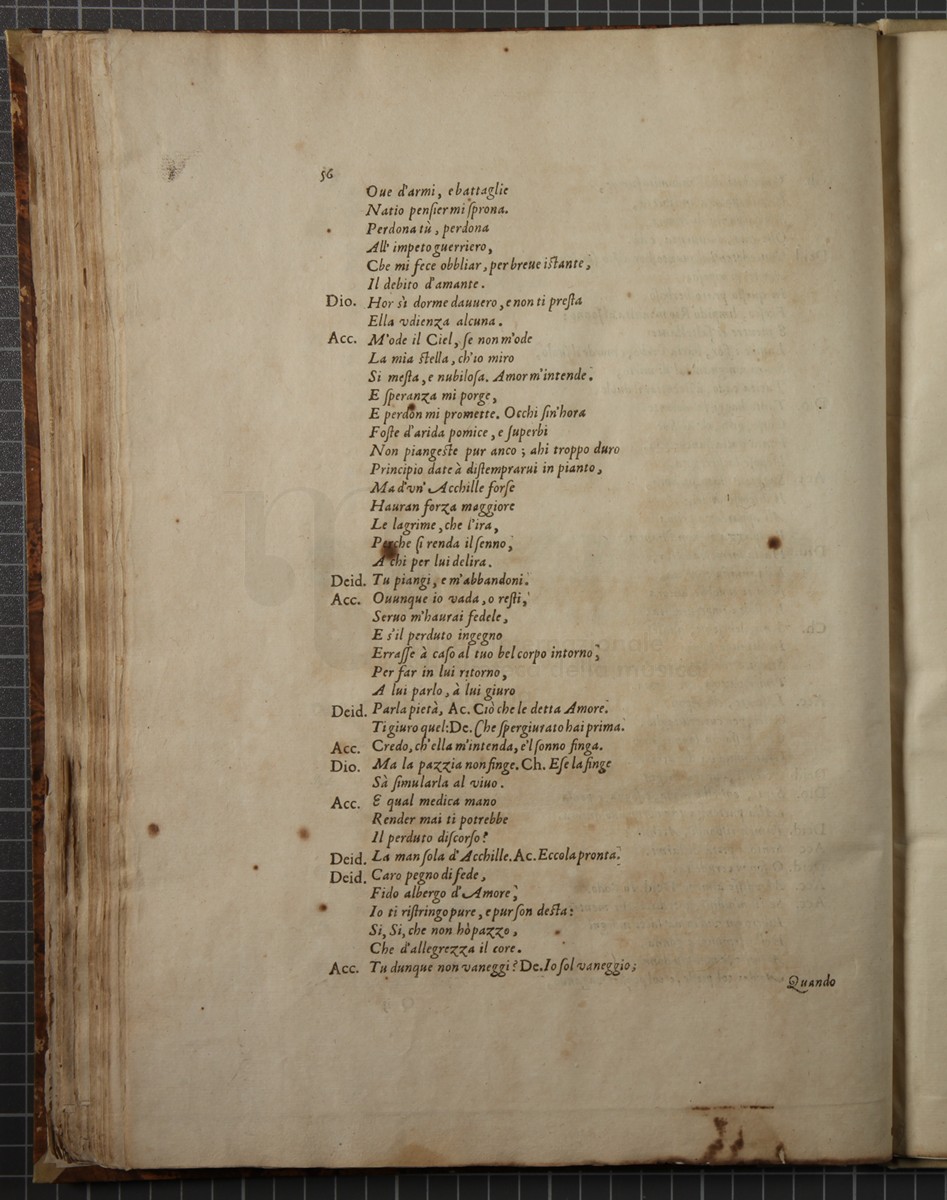 56
Oue d'armi, e battaglie
Natio penſier mi ſprona.
Perdona tù, perdona
All' impeto guerriero,
Che mi fece obbliar, per breue iſtante,
Il debito d'amante.
Dio. Hor sì dorme dauuero, e non ti preſta
Ella vdienza alcuna.
Acc. M'ode il Ciel, ſe non m'ode
La mia ſtella, ch'io miro
Si meſta, e nubiloſa. Amor m'intende.
E ſperanza mi porge,
E perdon mi promette. Occhi ſin'hora
Foſte d'arida pomice, e ſuperbi
Non piangeſte pur anco; ahi troppo duro
Principio date à diſtemprarui in pianto,
Ma d'vn' Acchille forſe
Hauran forza maggiore
Le lagrime, che l'ira,
Perche ſi renda il ſenno,
A chi per lui delira.
Deid. Tu piangi, e m'abbandoni.
Acc. Ouunque io vada, o reſti,
Seruo m'haurai fedele,
E s'il perduto ingegno
Erraſſe à caſo al tuo bel corpo intorno,
Per far in lui ritorno,
A lui parlo, à lui giuro
Deid. Parla pietà, Ac. Ciò che le detta Amore.
Ti giuro quel: De. Che ſpergiurato hai prima.
Acc. Credo, ch'ella m'intenda, e'l ſonno finga.
Dio. Ma la pazzia non finge. Ch. E ſe la finge
Sà ſimularla al viuo.
Acc. E qual medica mano
Render mai ti potrebbe
Il perduto diſcorſo?
Deid. La man ſola d'Acchille. Ac. Eccola pronta.
Deid. Caro pegno di fede,
Fido albergo d'Amore,
Io ti riſtringo pure, e pur ſon deſta:
Si, Si, che non hò pazzo,
Che d'allegrezza il core.
Acc. Tu dunque non vaneggi? De. Io ſol vaneggio;
Quando